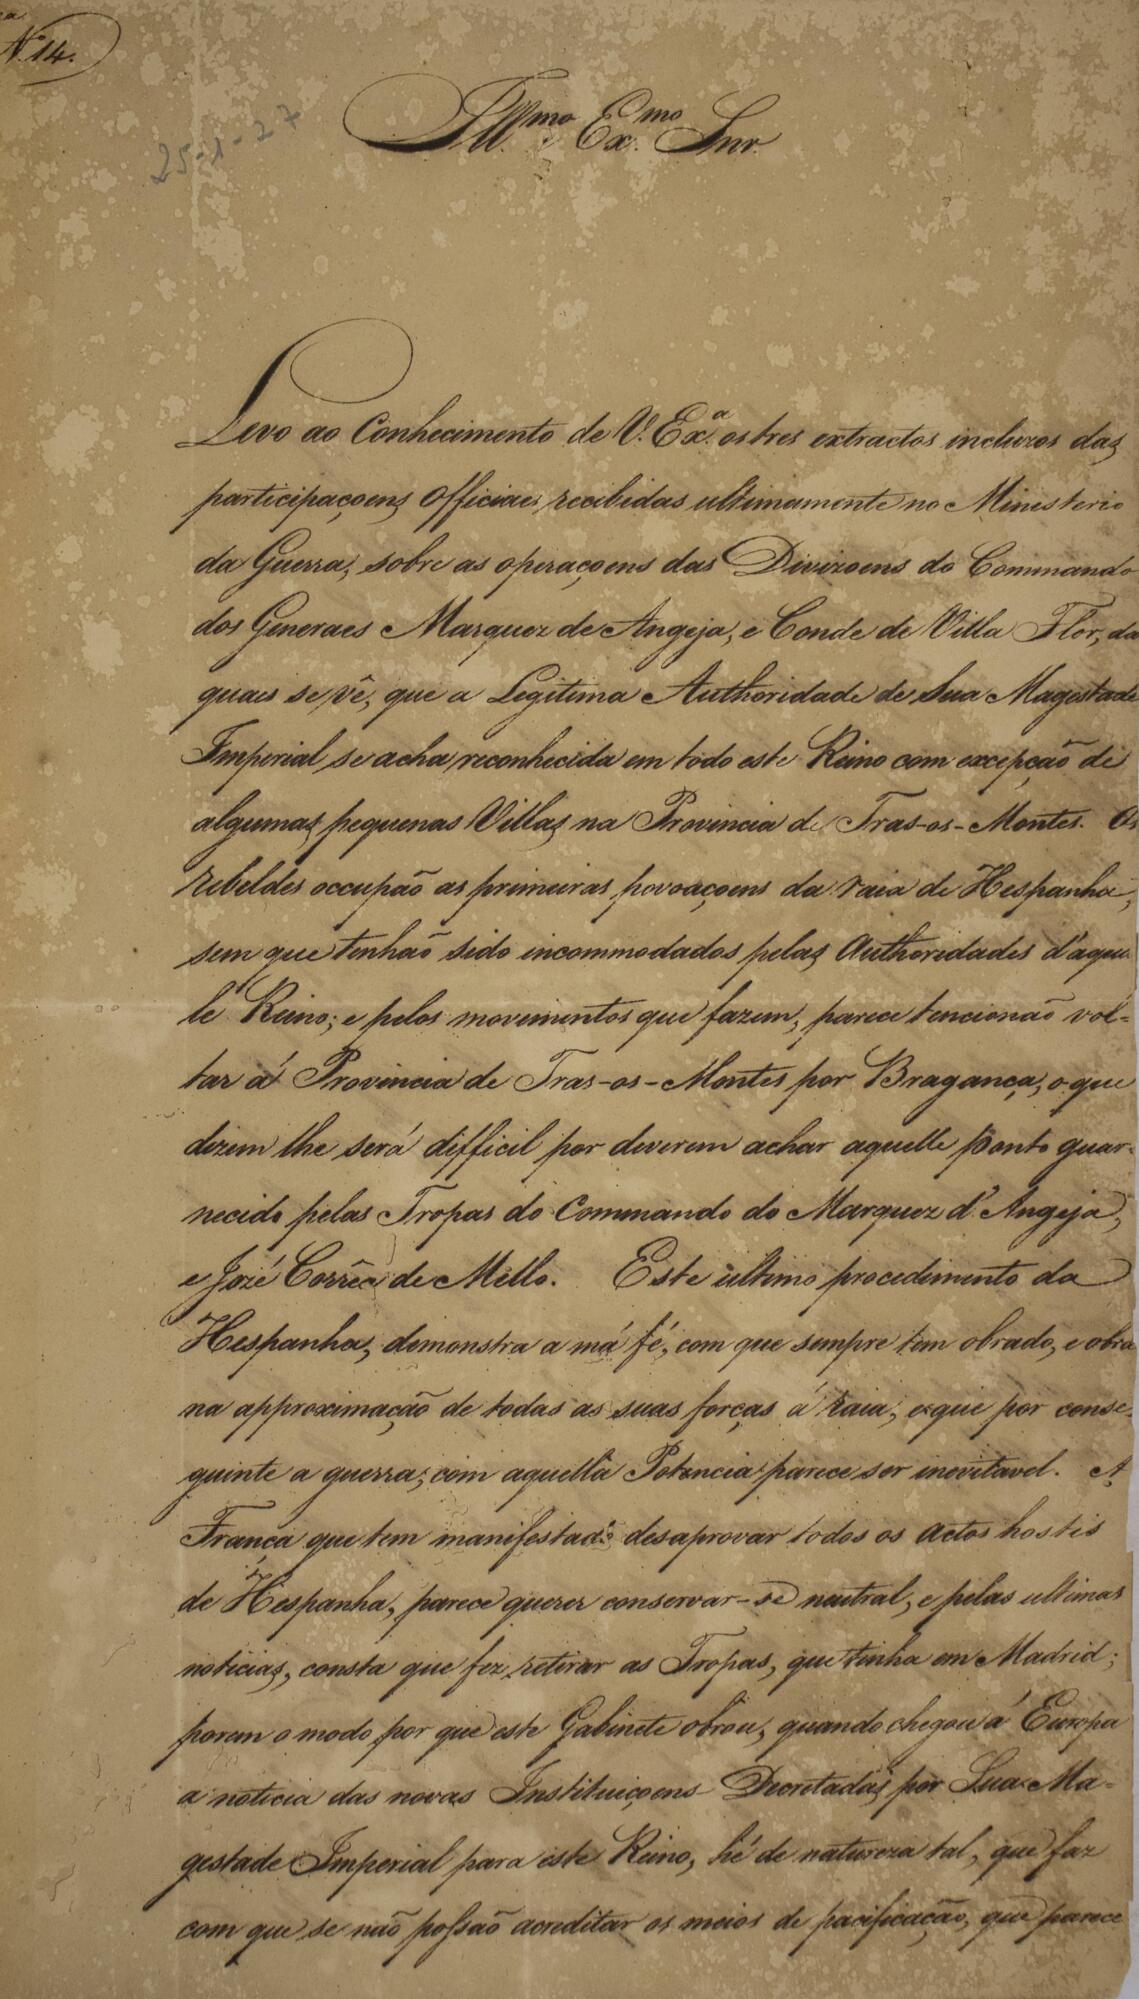 N. 14.
25-1-27
Ill.mo e Ex.mo Snr
Levo ao Conhecimento de V. Ex.a os tres extractos incluzos das
participaçoens Officiaes, recibidas ultimamente no Ministerio
da Guerra, sobre as operaçoens das Divizoens do Commando
dos Generaes Marquez de Angeja, e Conde de Villa Flor, da
quais se vê, que a Legitima Authoridade de Sua Magestade
Imperial se acha reconhecida em todo este Reino com excepção de
algumas pequenas Villas na Provincia de Tras-os-Montes. Os
rebeldes occupão as primeiras povoaçoens da raia de Hespanha,
sem que tenhão sido incommodados pelas Authoridades d'aquel
le Reino; e pelos movimentos que fazem, parece tencionão vol-
tar á Provincia de Tras-os-Montes por Bragança, o que
dizem lhe será difficil por deverem achar aquelle ponto guar-
necido pelas Tropas do Commando do Marquez d'Angeja,
e Jozé Corrêa de Mello. Este ultimo procedimento da
Hespanha, demonstra a má fé, com que sempre tem obrado, e obra
na approximação de todas as suas forças á raia, e que por conse-
guinte a guerra, com aquella Potencia parece ser inevitavel. A
França que tem manifestado desaprovar todos os actos hostis
de Hespanha, parece querer conservar-se neutral, e pelas ultimas
noticias, consta que fez retirar as Tropas, que tinha em Madrid;
porem o modo por que este Gabinete obrou, quando chegou á Europa
a noticia das novas Instituiçoens Decretadas por Sua Ma-
gestade Imperial para este Reino, hé de natureza tal, que faz
com que se não possão acreditar os meios de pacificação, que parece